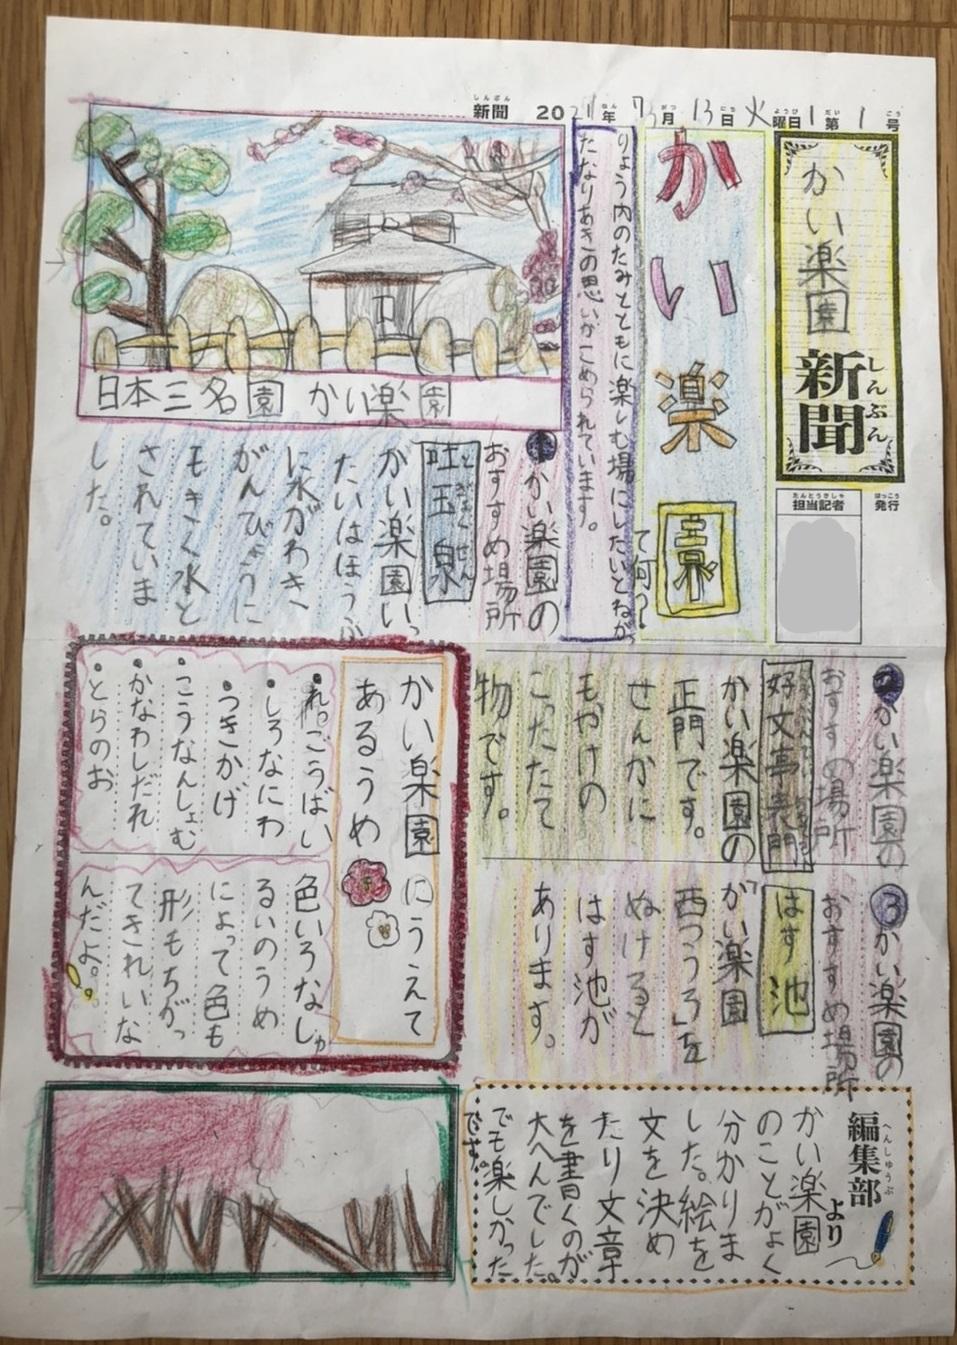 新聞 2021年 7月 13日 火曜日 第 1 号
かい楽園
新聞
しんぶん
発行
担当記者
かい楽園
って何?
りょう内のたみとともに楽しむ場にしたいとねがっ
たなりあきの思いがこめられています。
日本三名園 かい楽園
❶かい楽園の
おすすめ場所
吐玉泉
とぎょくせん
かい楽園いっ
たいはほうふ
に水がわき
がんぴょうに
もきく水と
されていま
した。
❷かい楽園の
おすすめ場所
好文亭表門
かい楽園の
正門です。
せんかに
もやけの
こったたて
物です。
③かい楽園の
おすすめ場所
はす池
かい楽園
西つうろ」を
ぬけると
はす池が
あります。
かい楽園にうえて
あるうめ
・れっこうばい
・しろなにわ
・つきかげ
・こうなんしょむ
・かなわしだれ
・とらのお
色いろなしゅ
るいのうめ
によって色も
形もちがっ
てきれいな
んだよ。
編集部より
へんしゅうぶ
かい楽園
のことがよく
分かりま
した。絵を
文を決め
たり文章
を書くのが
大へんでした。
でも楽しかった
です。